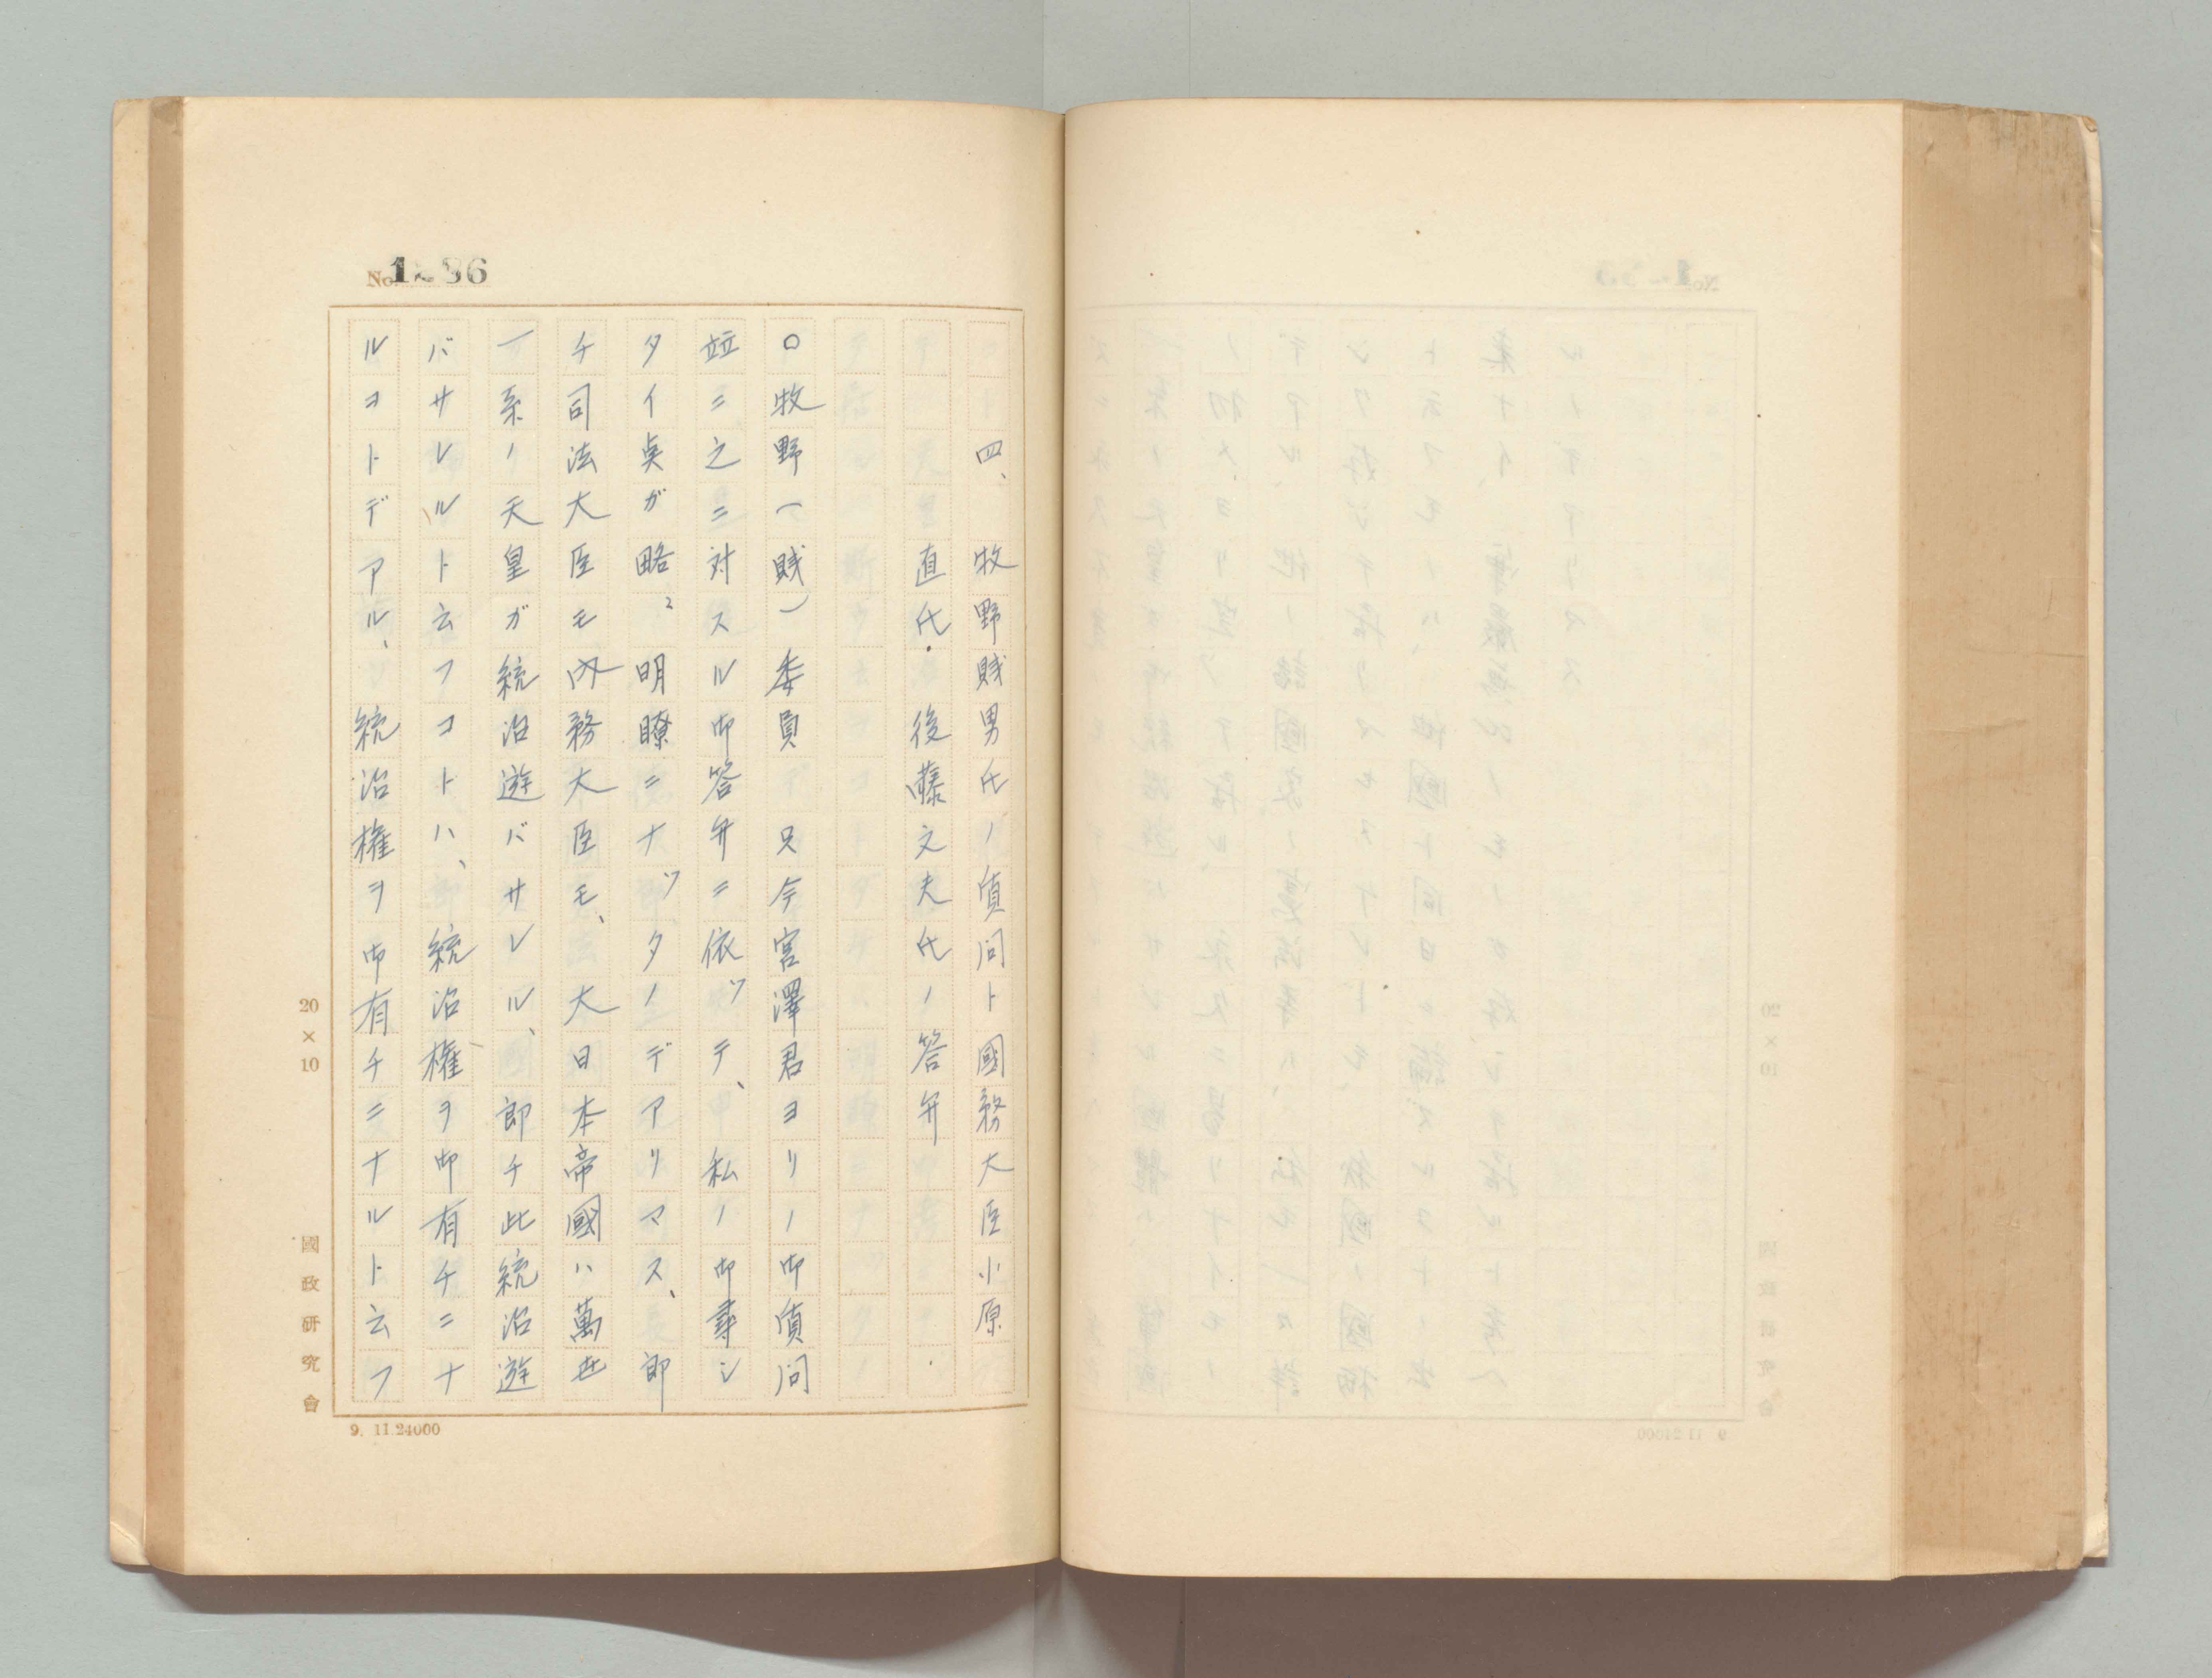 No. 1286
四、牧野賤男氏ノ質問ト國務大臣小原
直氏・後藤文夫氏ノ答弁
○牧野(賤)委員 只今宮澤君ヨリノ御質問
竝ニ之ニ対スル御答弁ニ依ツテ、私ノ御尋シ
タイ奌ガ略〻明瞭ニナツタノデアリマス、即
チ司法大臣モ内務大臣モ、大日本帝國ハ萬世
一系ノ天皇ガ統治遊バサレル、即チ此統治遊
バサレルト云フコトハ、統治権ヲ御有チニナ
ルコトデアル、統治権ヲ御有チニナルト云フ
20×10
國政研究會
9. 11.24000